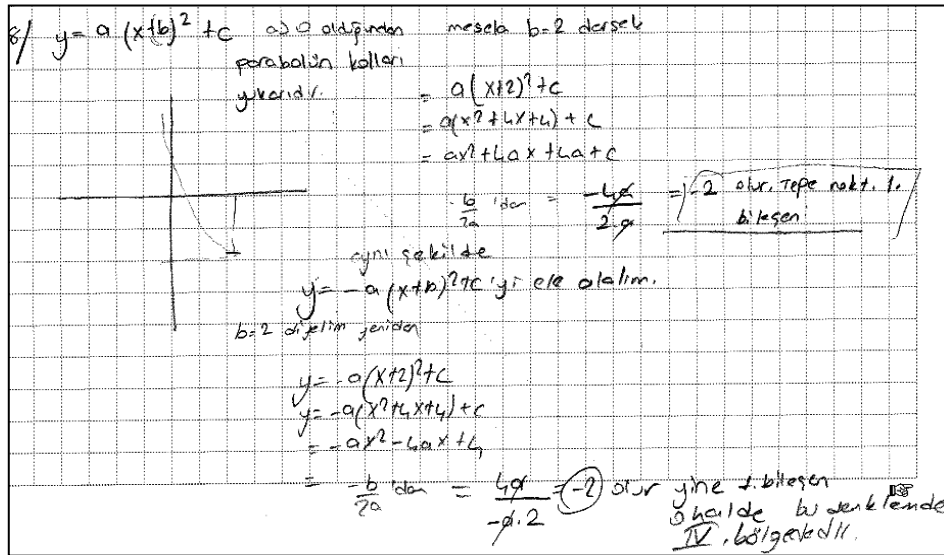 8/ y = a (x+b)² + c a>0 olduğundan mesela b=2 dersek
parabolün kolları
yukarıdır.
= a(x+2)²+c
= a(x²+4x+4) + c
= ax²+4ax+4a+c
-b/2a 'dan = -4a/2.a = -2 olur. Tepe nokt. 1.
bileşen
aynı şekilde
y = -a(x+b)²+c 'yi ele alalım.
b=2 diyelim yeniden
y = -a(x+2)²+c
y = -a(x²+4x+4)+c
= -ax²-4ax+4
= -b/2a 'dan = 4a/-a.2 = -2 olur yine 1. bileşen
O halde bu denklemde
IV. bölgededir.